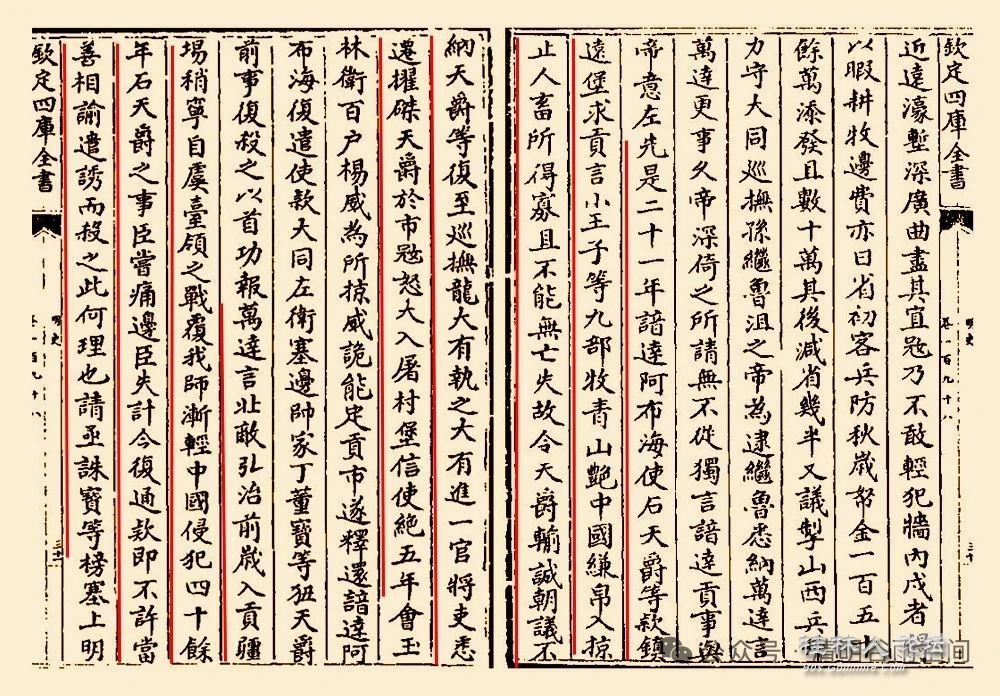 欽定四庫全書
明史
卷一百九十八
近遠濠塹深廣曲盡其宜寇乃不敢輕犯牆內戍者得
以暇耕牧邊費亦日省初客兵防秋歲帑金一百五十
餘萬添發且數十萬其後減省幾半又議掣山西兵
力守大同巡撫孫繼魯沮之帝為逮繼魯悉納萬達言
萬達更事久帝深倚之所請無不從獨言諳達貢事與
帝意左先是二十一年諳達阿布海使石天爵等款鎮
遠堡求貢言小王子等九部牧青山艷中國縑帛入掠
止人畜所得寡且不能無亡失故令天爵輸誠朝議不
納天爵等復至巡撫龍大有執之大有進一官將吏悉
遷擢磔天爵於市寇怒大入屠村堡信使絕五年會玉
林衛百戶楊威為所掠威詭能定貢市遂釋還諳達阿
布海復遣使款大同左衛塞邊帥家丁董寶等狃天爵
前事復殺之以首功報萬達言北敵弘治前歲入貢疆
場稍寧自虞臺嶺之戰覆我師漸輕中國侵犯四十餘
年石天爵之事臣嘗痛邊臣失計今復通款即不許當
善相諭遣誘而殺之此何理也請亟誅寶等榜塞上明
欽定四庫全書
明史
卷一百九十八